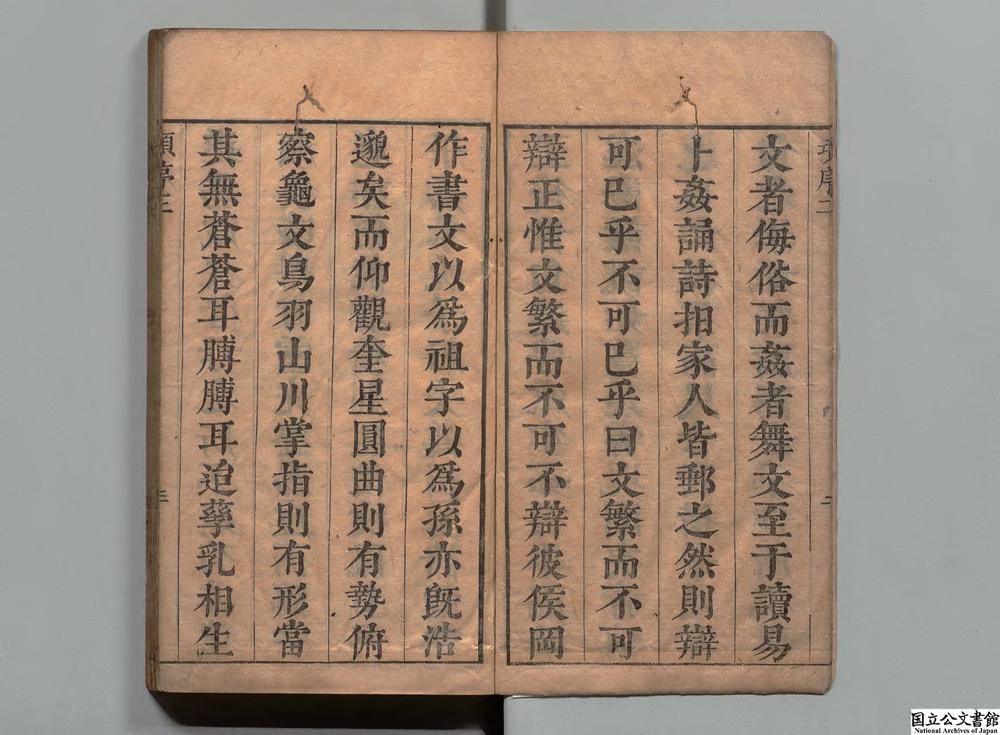 文者侮俗而姦者舞文至于讀易
卜姦誦詩抇家人皆郵之然則辯
可已乎不可已乎曰文繁而不可
辯正惟文繁而不可不辯彼侯岡
作書文以為祖字以為孫亦既浩
邈矣而仰觀奎星圓曲則有勢俯
察龜文鳥羽山川掌指則有形當
其無蒼蒼耳膊膊耳迨孳乳相生
三
国立公文書館
National Archives of Japan